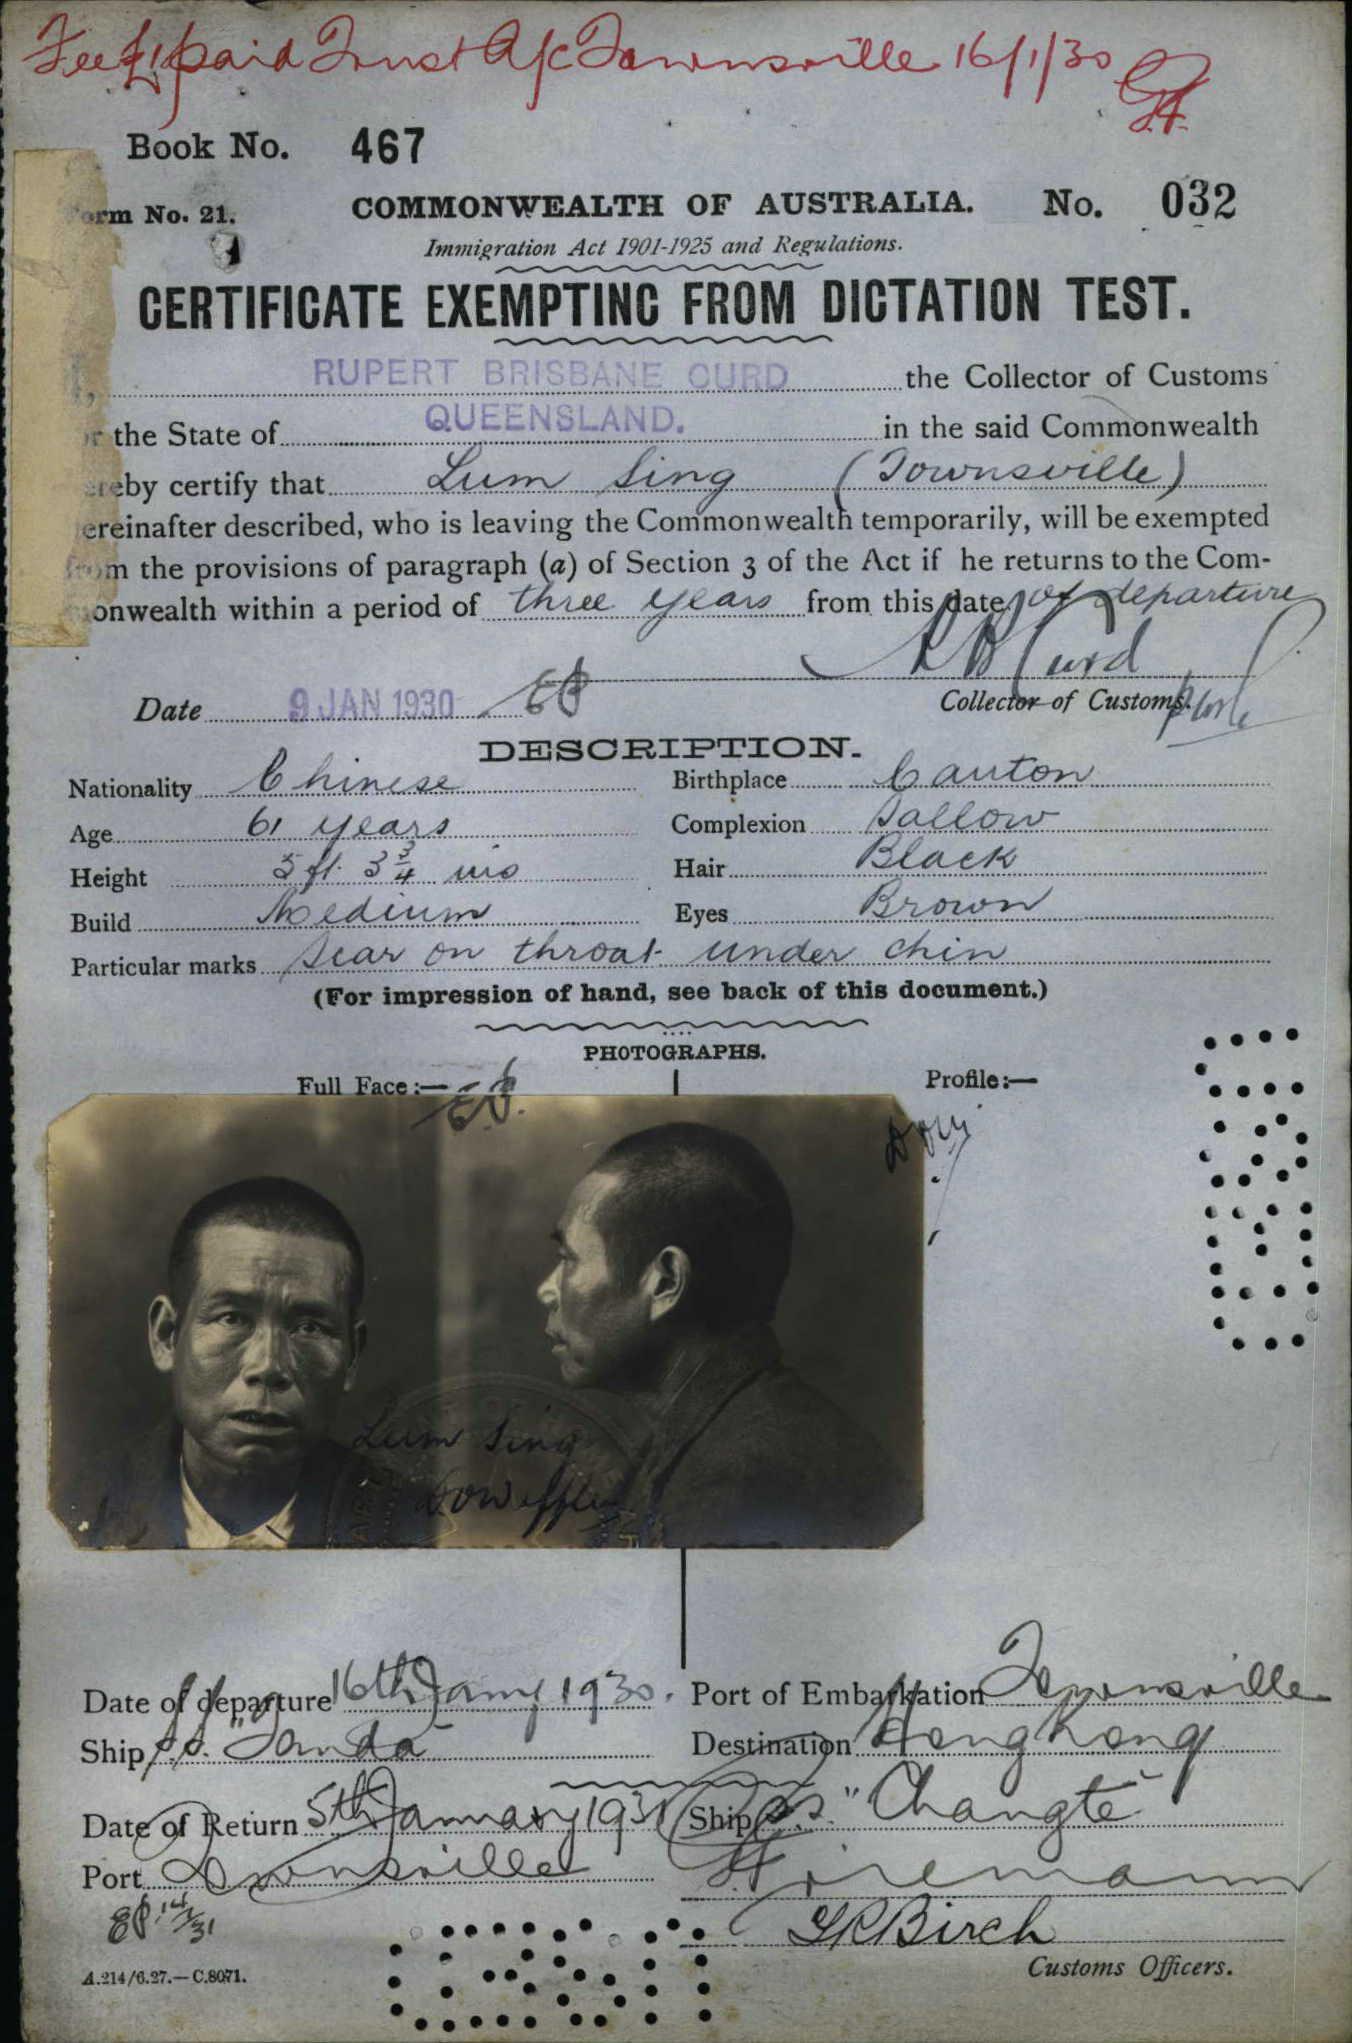 Fee £1 paid Trust A/c Townsville 16/1/30
Book No. 467
orm No. 21. COMMONWEALTH OF AUSTRALIA. No. 032
Immigration Act 1901-1925 and Regulations.
CERTIFICATE EXEMPTING FROM DICTATION TEST.
I, RUPERT BRISBANE CURD the Collector of Customs
r the State of QUEENSLAND. in the said Commonwealth
ereby certify that Lum Sing (Townsville)
ereinafter described, who is leaving the Commonwealth temporarily, will be exempted
from the provisions of paragraph (a) of Section 3 of the Act if he returns to the Com-
onwealth within a period of three years from this date of departure
R B Curd
Date 9 JAN 1930 Collector of Customs.
DESCRIPTION.
Nationality Chinese Birthplace Canton
Age 61 years Complexion Sallow
Height 5 ft 3 3/4 ins Hair Black
Build Medium Eyes Brown
Particular marks Scar on throat under chin
(For impression of hand, see back of this document.)
PHOTOGRAPHS.
Full Face:— Profile:—
Lum Sing
Date of departure 16th Jany 1930. Port of Embarkation Townsville
Ship s.s. "Tanda" Destination Hong Kong
Date of Return 5th January 1931 Ship s.s "Changte"
Port Townsville
G R Birch
Customs Officers.
A.214/6.27.—C.8071.